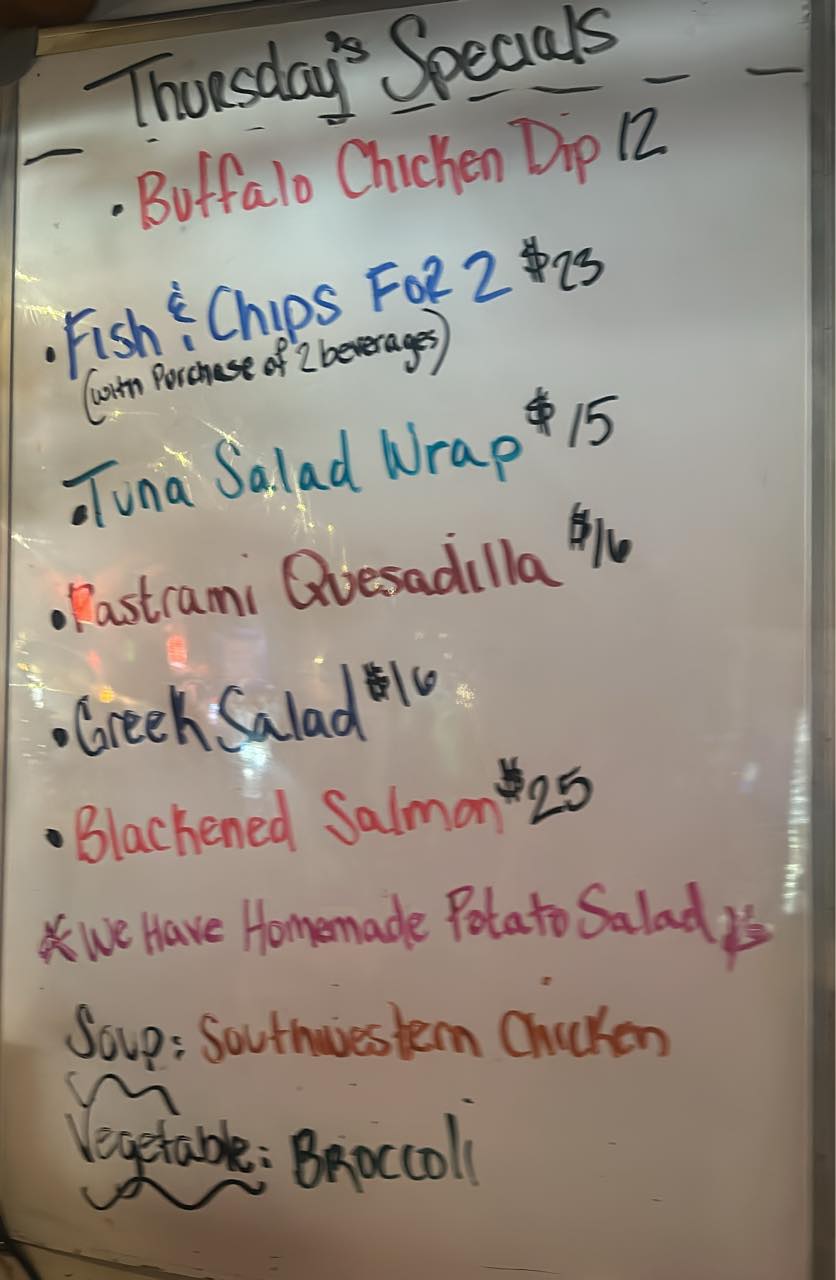 Thursday's Specials
• Buffalo Chicken Dip 12
• Fish & Chips For 2 $23
(with Purchase of 2 beverages)
• Tuna Salad Wrap $15
• Pastrami Quesadilla $16
• Greek Salad $16
• Blackened Salmon $25
* We Have Homemade Potato Salad *
Soup: Southwestern Chicken
Vegetable: Broccoli